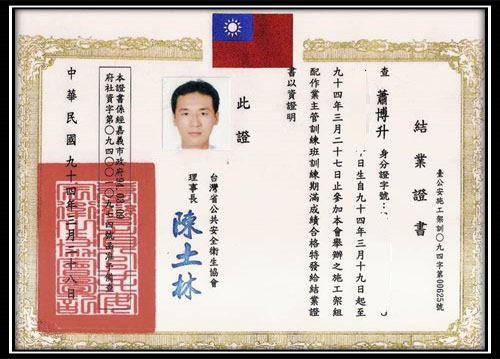 結業證書
臺公安施工架訓〇九四字第00625號
查 蕭博升 身分證字號:
日生自九十四年三月十九日起至
九十四年三月二十七日止參加本會舉辦之施工架組
配作業主管訓練班訓練期滿成績合格特發給結業證
書以資證明
此證
台灣省公共安全衛生協會
理事長 陳土林
本證書係經嘉義市政府94.03.09
府社資字第〇九四〇〇〇
中華民國九十四年三月二十八日